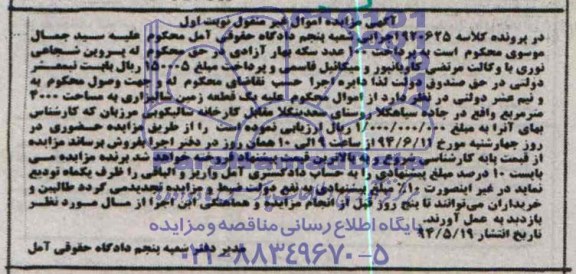 آگهی مزایده اموال غیر منقول نوبت اول
در پرونده کلاسه ۹۲۰۶۲۵ اجرایی شعبه پنجم دادگاه حقوقی آمل محکوم علیه سید جمال
موسوی محکوم است به پرداخت ۱۰۰ عدد سکه بهار آزادی در حق محکوم له پروین شجاعی
نوری با وکالت مرتضی کاریانپور و میکائیل قاسمی و پرداخت مبلغ ریال بابت نیمعشر
دولتی در حق صندوق دولت لذا دایره اجرا حسب تقاضای محکوم له و جهت وصول محکوم به
و نیم عشر دولتی در نظر دارد از اموال محکوم علیه یک قطعه زمین شالیزاری به مساحت ۴۰۰۰
مترمربع واقع در جاده سیاهکلا روستای سعدینکلا مقابل کارخانه شالیکوبی مرزبان که کارشناس
بهای آنرا به مبلغ ریال ارزیابی نموده است را از طریق مزایده حضوری در
روز چهارشنبه مورخ ۹۴/۶/۱۱ ساعت ۹ الی ۱۰ همان روز در دفتر اجرا بفروش برساند مزایده
از قیمت پایه کارشناسی شروع و به بالاترین قیمت پیشنهادی فروخته خواهد شد برنده مزایده می
بایست ۱۰ درصد مبلغ پیشنهادی را به حساب دادگستری آمل واریز و الباقی را ظرف یکماه تودیع
نماید در غیر اینصورت ۱۰٪ مبلغ پیشنهادی به نفع دولت ضبط و مزایده تجدید می گردد طالبین و
خریداران می‌توانند تا پنج روز قبل از انجام مزایده و هماهنگی این اجرا از مال مورد نظر
بازدید به عمل آورند.
پایگاه اطلاع رسانی مناقصه و مزایده
تاریخ انتشار ۹۴/۵/۱۹
مدیر دفتر شعبه پنجم دادگاه حقوقی آمل
۰۲۱-۸۸۳۴۹۶۷۰-۵